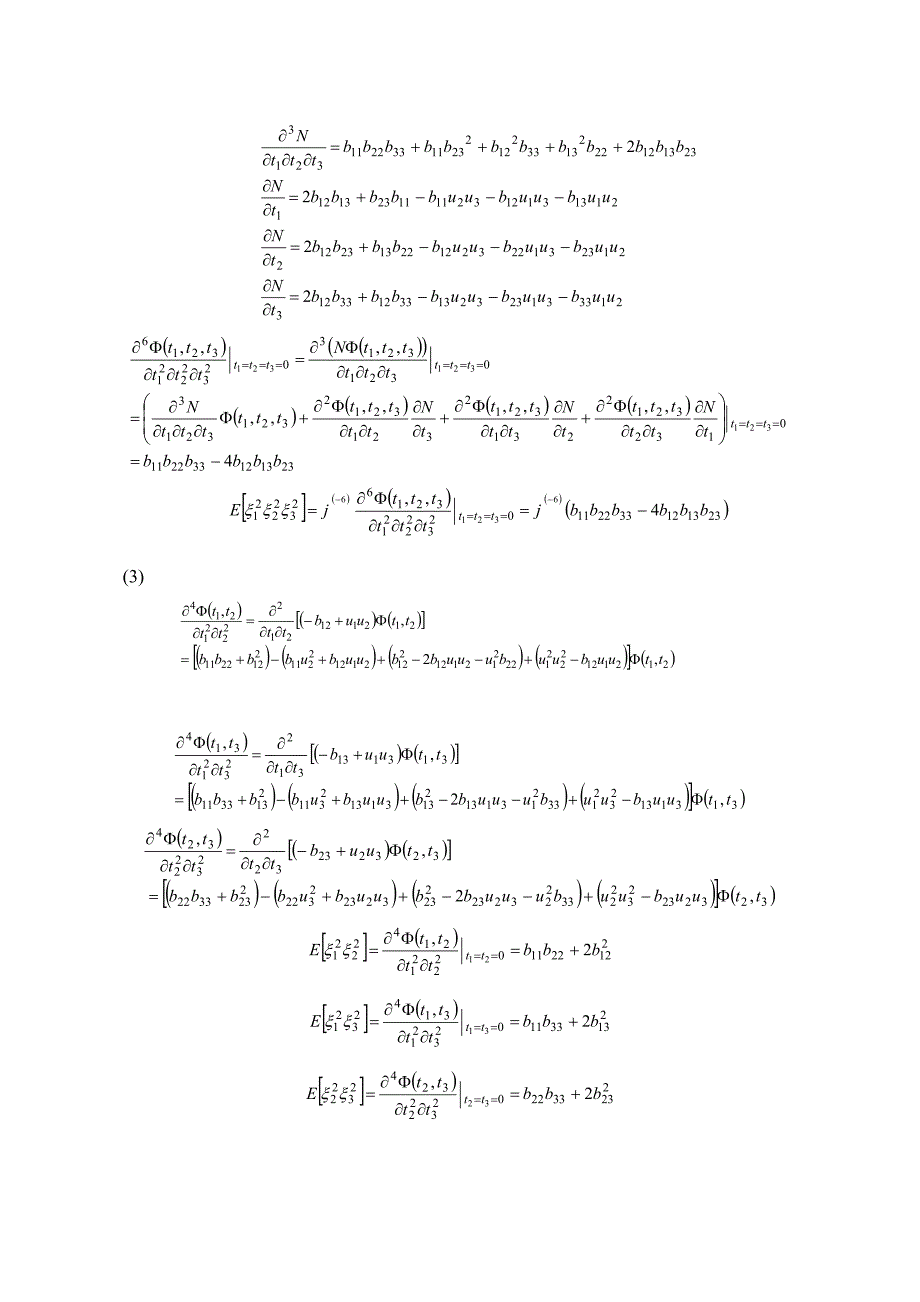 ∂³N/∂t₁∂t₂∂t₃ = b₁₁b₂₂b₃₃ + b₁₁b₂₃² + b₁₂²b₃₃ + b₁₃²b₂₂ + 2b₁₂b₁₃b₂₃
∂N/∂t₁ = 2b₁₂b₁₃ + b₂₃b₁₁ − b₁₁u₂u₃ − b₁₂u₁u₃ − b₁₃u₁u₂
∂N/∂t₂ = 2b₁₂b₂₃ + b₁₃b₂₂ − b₁₂u₂u₃ − b₂₂u₁u₃ − b₂₃u₁u₂
∂N/∂t₃ = 2b₁₂b₃₃ + b₁₂b₃₃ − b₁₃u₂u₃ − b₂₃u₁u₃ − b₃₃u₁u₂
∂⁶Φ(t₁,t₂,t₃)/∂t₁²∂t₂²∂t₃² |t₁=t₂=t₃=0 = ∂³(NΦ(t₁,t₂,t₃))/∂t₁∂t₂∂t₃ |t₁=t₂=t₃=0
= (∂³N/∂t₁∂t₂∂t₃ Φ(t₁,t₂,t₃) + ∂²Φ(t₁,t₂,t₃)/∂t₁∂t₂ ∂N/∂t₃ + ∂²Φ(t₁,t₂,t₃)/∂t₁∂t₃ ∂N/∂t₂ + ∂²Φ(t₁,t₂,t₃)/∂t₂∂t₃ ∂N/∂t₁) |t₁=t₂=t₃=0
= b₁₁b₂₂b₃₃ − 4b₁₂b₁₃b₂₃
E[ξ₁²ξ₂²ξ₃²] = j⁽⁻⁶⁾ ∂⁶Φ(t₁,t₂,t₃)/∂t₁²∂t₂²∂t₃² |t₁=t₂=t₃=0 = j⁽⁻⁶⁾ (b₁₁b₂₂b₃₃ − 4b₁₂b₁₃b₂₃)
(3)
∂⁴Φ(t₁,t₂)/∂t₁²∂t₂² = ∂²/∂t₁∂t₂ [(−b₁₂ + u₁u₂)Φ(t₁,t₂)]
= [(b₁₁b₂₂ + b₁₂²) − (b₁₁u₂² + b₁₂u₁u₂) + (b₁₂² − 2b₁₂u₁u₂ − u₁²b₂₂) + (u₁²u₂² − b₁₂u₁u₂)]Φ(t₁,t₂)
∂⁴Φ(t₁,t₃)/∂t₁²∂t₃² = ∂²/∂t₁∂t₃ [(−b₁₃ + u₁u₃)Φ(t₁,t₃)]
= [(b₁₁b₃₃ + b₁₃²) − (b₁₁u₃² + b₁₃u₁u₃) + (b₁₃² − 2b₁₃u₁u₃ − u₁²b₃₃) + (u₁²u₃² − b₁₃u₁u₃)]Φ(t₁,t₃)
∂⁴Φ(t₂,t₃)/∂t₂²∂t₃² = ∂²/∂t₂∂t₃ [(−b₂₃ + u₂u₃)Φ(t₂,t₃)]
= [(b₂₂b₃₃ + b₂₃²) − (b₂₂u₃² + b₂₃u₂u₃) + (b₂₃² − 2b₂₃u₂u₃ − u₂²b₃₃) + (u₂²u₃² − b₂₃u₂u₃)]Φ(t₂,t₃)
E[ξ₁²ξ₂²] = ∂⁴Φ(t₁,t₂)/∂t₁²∂t₂² |t₁=t₂=0 = b₁₁b₂₂ + 2b₁₂²
E[ξ₁²ξ₃²] = ∂⁴Φ(t₁,t₃)/∂t₁²∂t₃² |t₁=t₃=0 = b₁₁b₃₃ + 2b₁₃²
E[ξ₂²ξ₃²] = ∂⁴Φ(t₂,t₃)/∂t₂²∂t₃² |t₂=t₃=0 = b₂₂b₃₃ + 2b₂₃²